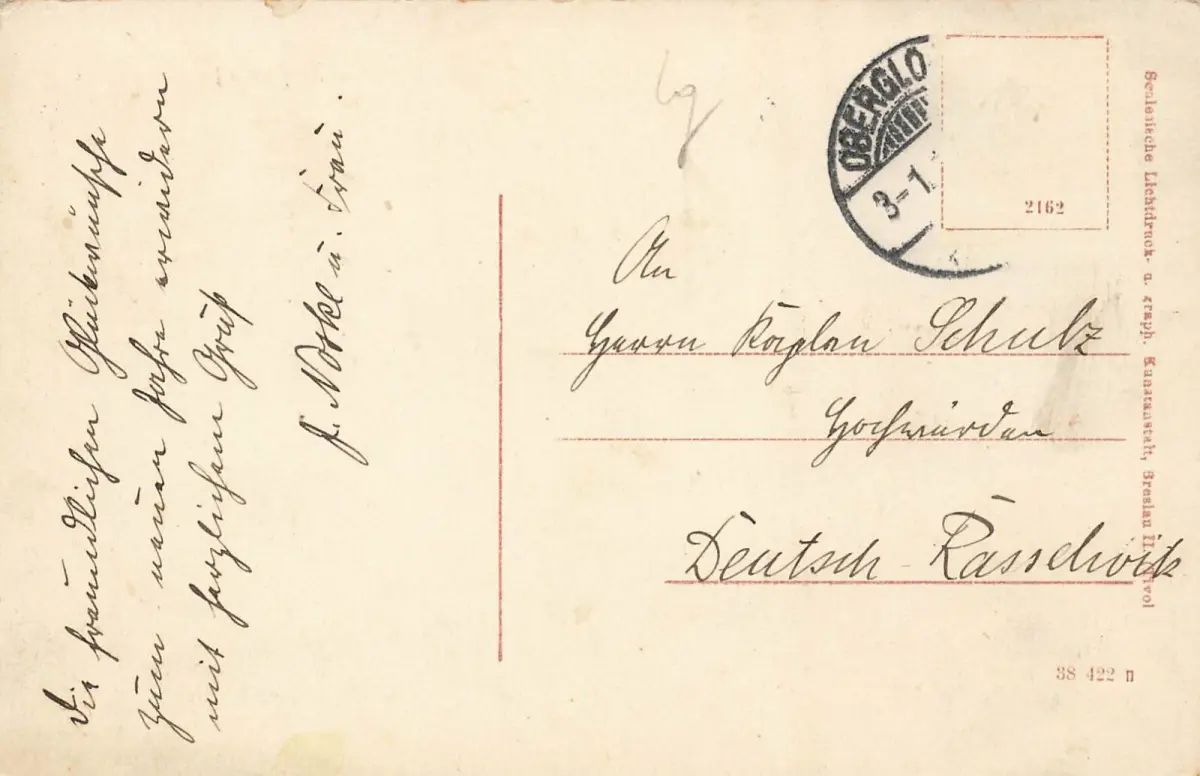 Die freundlichen Glückwünsche
zum neuen Jahre erwidern
mit herzlichem Gruß
J. Noske u. Frau.
OBERGLO
3-1.
2162
An
Herrn Kaplan Schulz
Hochwürden
Deutsch-Rasselwitz
38 422 n
Schlesische Lichtdruck- u. graph. Kunstanstalt, Breslau II.